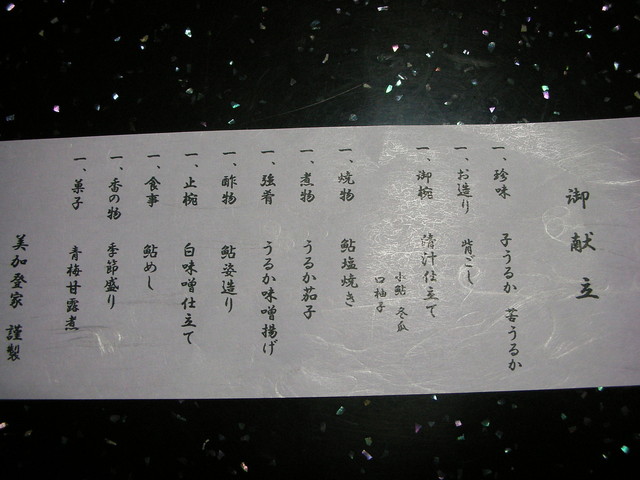 御献立
一、珍味 子うるか 苦うるか
一、お造り 背ごし
一、御椀 清汁仕立て
小鮎 冬瓜
口柚子
一、焼物 鮎塩焼き
一、煮物 うるか茄子
一、強肴 うるか味噌揚げ
一、酢物 鮎姿造り
一、止椀 白味噌仕立て
一、食事 鮎めし
一、香の物 季節盛り
一、菓子 青梅甘露煮
美加登家 謹製